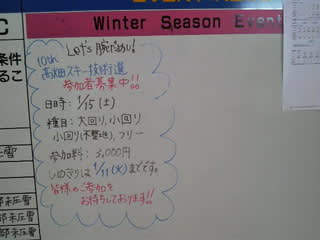 C
Winter Season Event
条件
るこ
Let's 腕だめし!
10th
高畑スキー技術選
参加者募集中!!
日時: 1/15 (土)
種目: 大回り, 小回り
小回り(不整地), フリー
参加料: 3,000円
しめきりは 1/11 (火) までです。
皆様のご参加を
お待ちしております!!
部未圧雪
部未圧雪